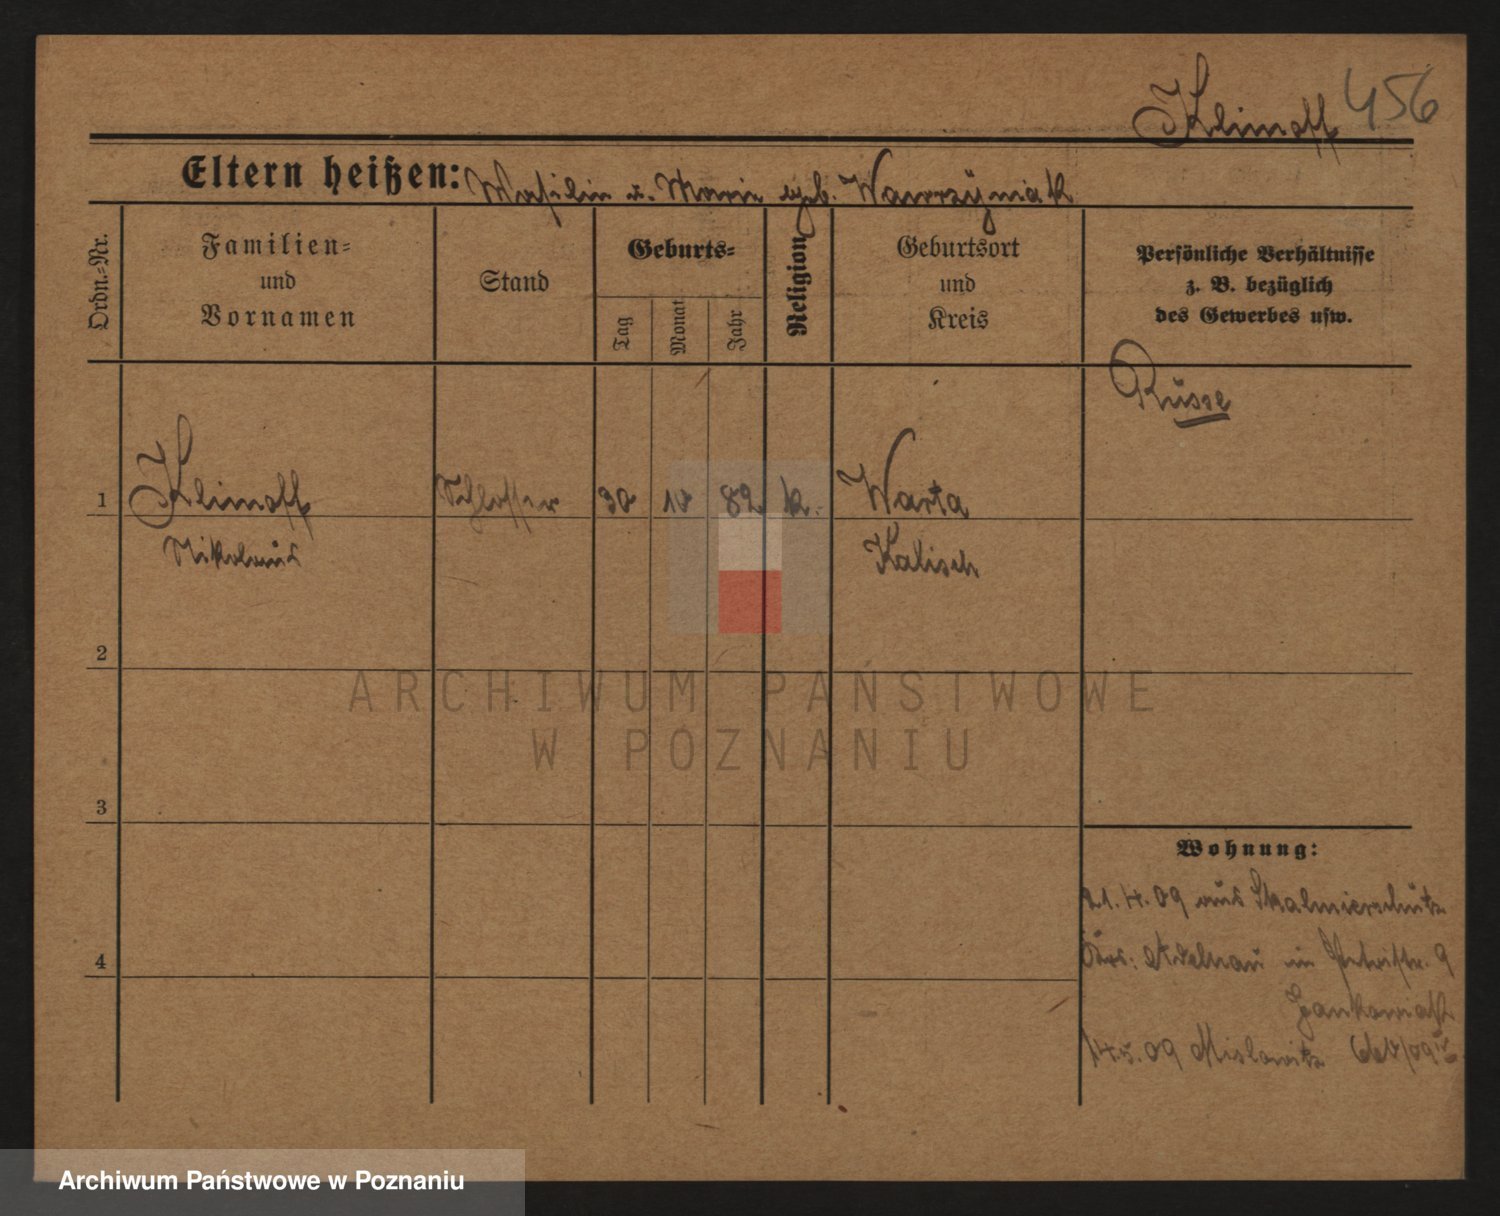 Klimoff 456
Eltern heißen: Wasilin u. Marie geb. Wawrzyniak
Ordn.-Nr.
Familien-
und
Vornamen
Stand
Geburts-
Tag
Monat
Jahr
Religion
Geburtsort
und
Kreis
Persönliche Verhältnisse
z. B. bezüglich
des Gewerbes usw.
Russe
1 Klimoff Schlosser 30 10 82 k. Warta
Nikolaus Kalisch
2
3
4
Wohnung:
21.4.09 aus Skalmierschütz
Krs. Adelnau in Petristr. 9
Jankowiak
14.5.09 Mislowitz
ARCHIWUM PAŃSTWOWE
W POZNANIU
Archiwum Państwowe w Poznaniu